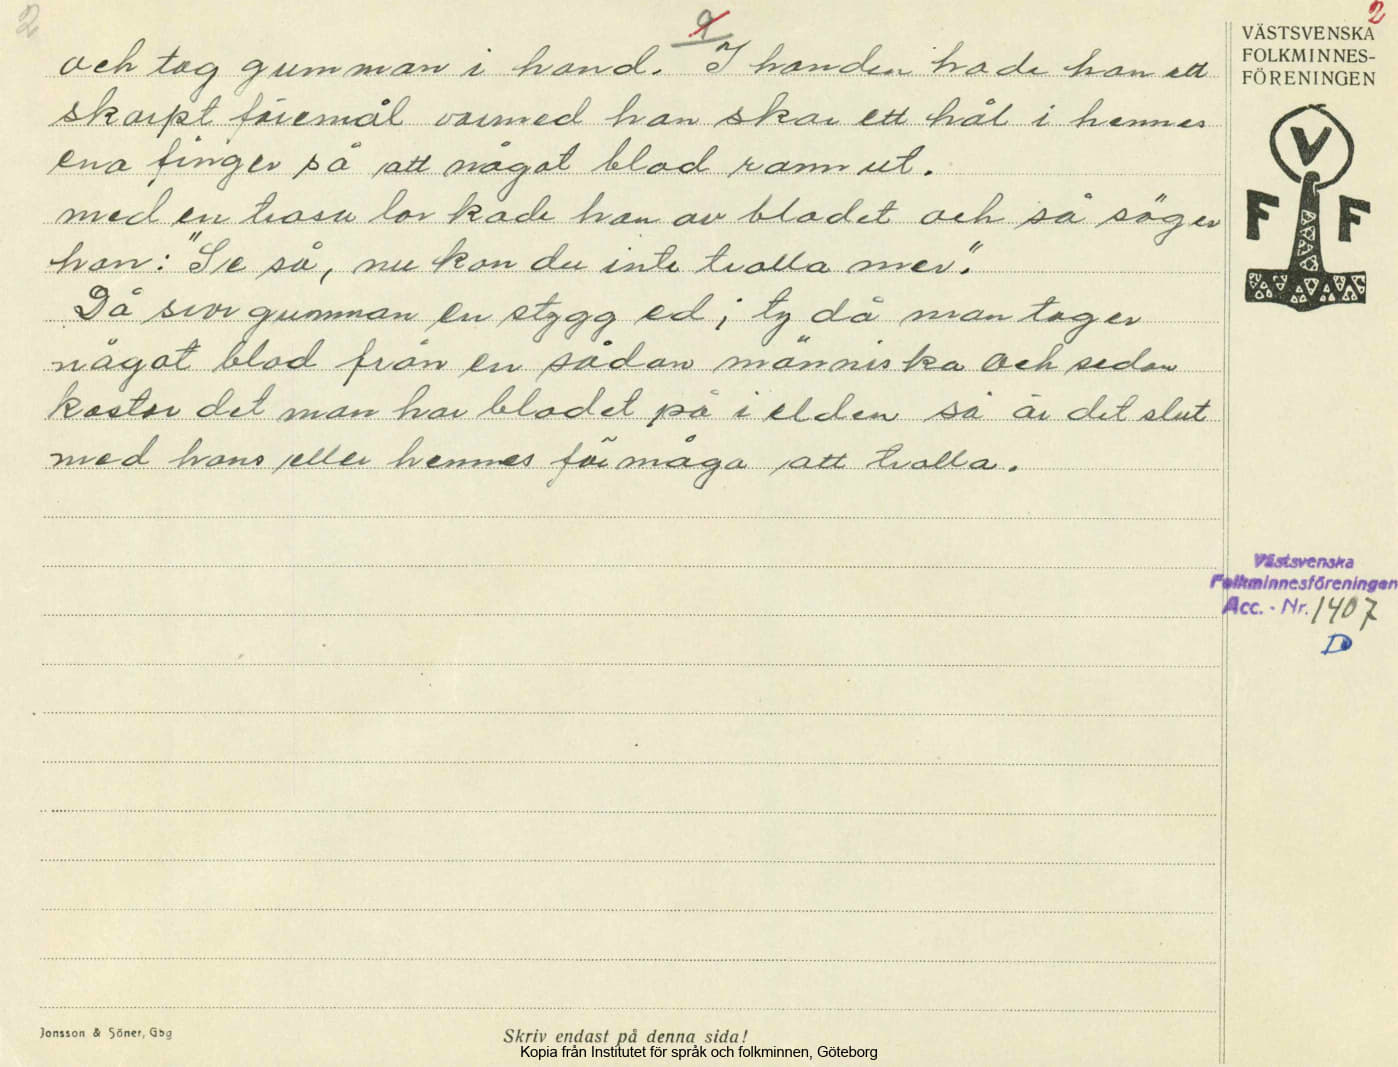 2
9
2
och tog gumman i hand. I handen hade han ett
skarpt föremål varmed han skar ett hål i hennes
ena finger så att något blod rann ut.
med en trasa torkade han av blodet och så säger
han: "Se så, nu kan du inte trolla mer".
Då svor gumman en stygg ed; ty då man tager
något blod från en sådan människa och sedan
kastar det man har blodet på i elden så är det slut
med hans eller hennes förmåga att trolla.
VÄSTSVENSKA
FOLKMINNES-
FÖRENINGEN
V
F F
Västsvenska
Folkminnesföreningen
Acc. - Nr. 1407
D
Jonsson & Söner, Gbg
Skriv endast på denna sida!
Kopia från Institutet för språk och folkminnen, Göteborg